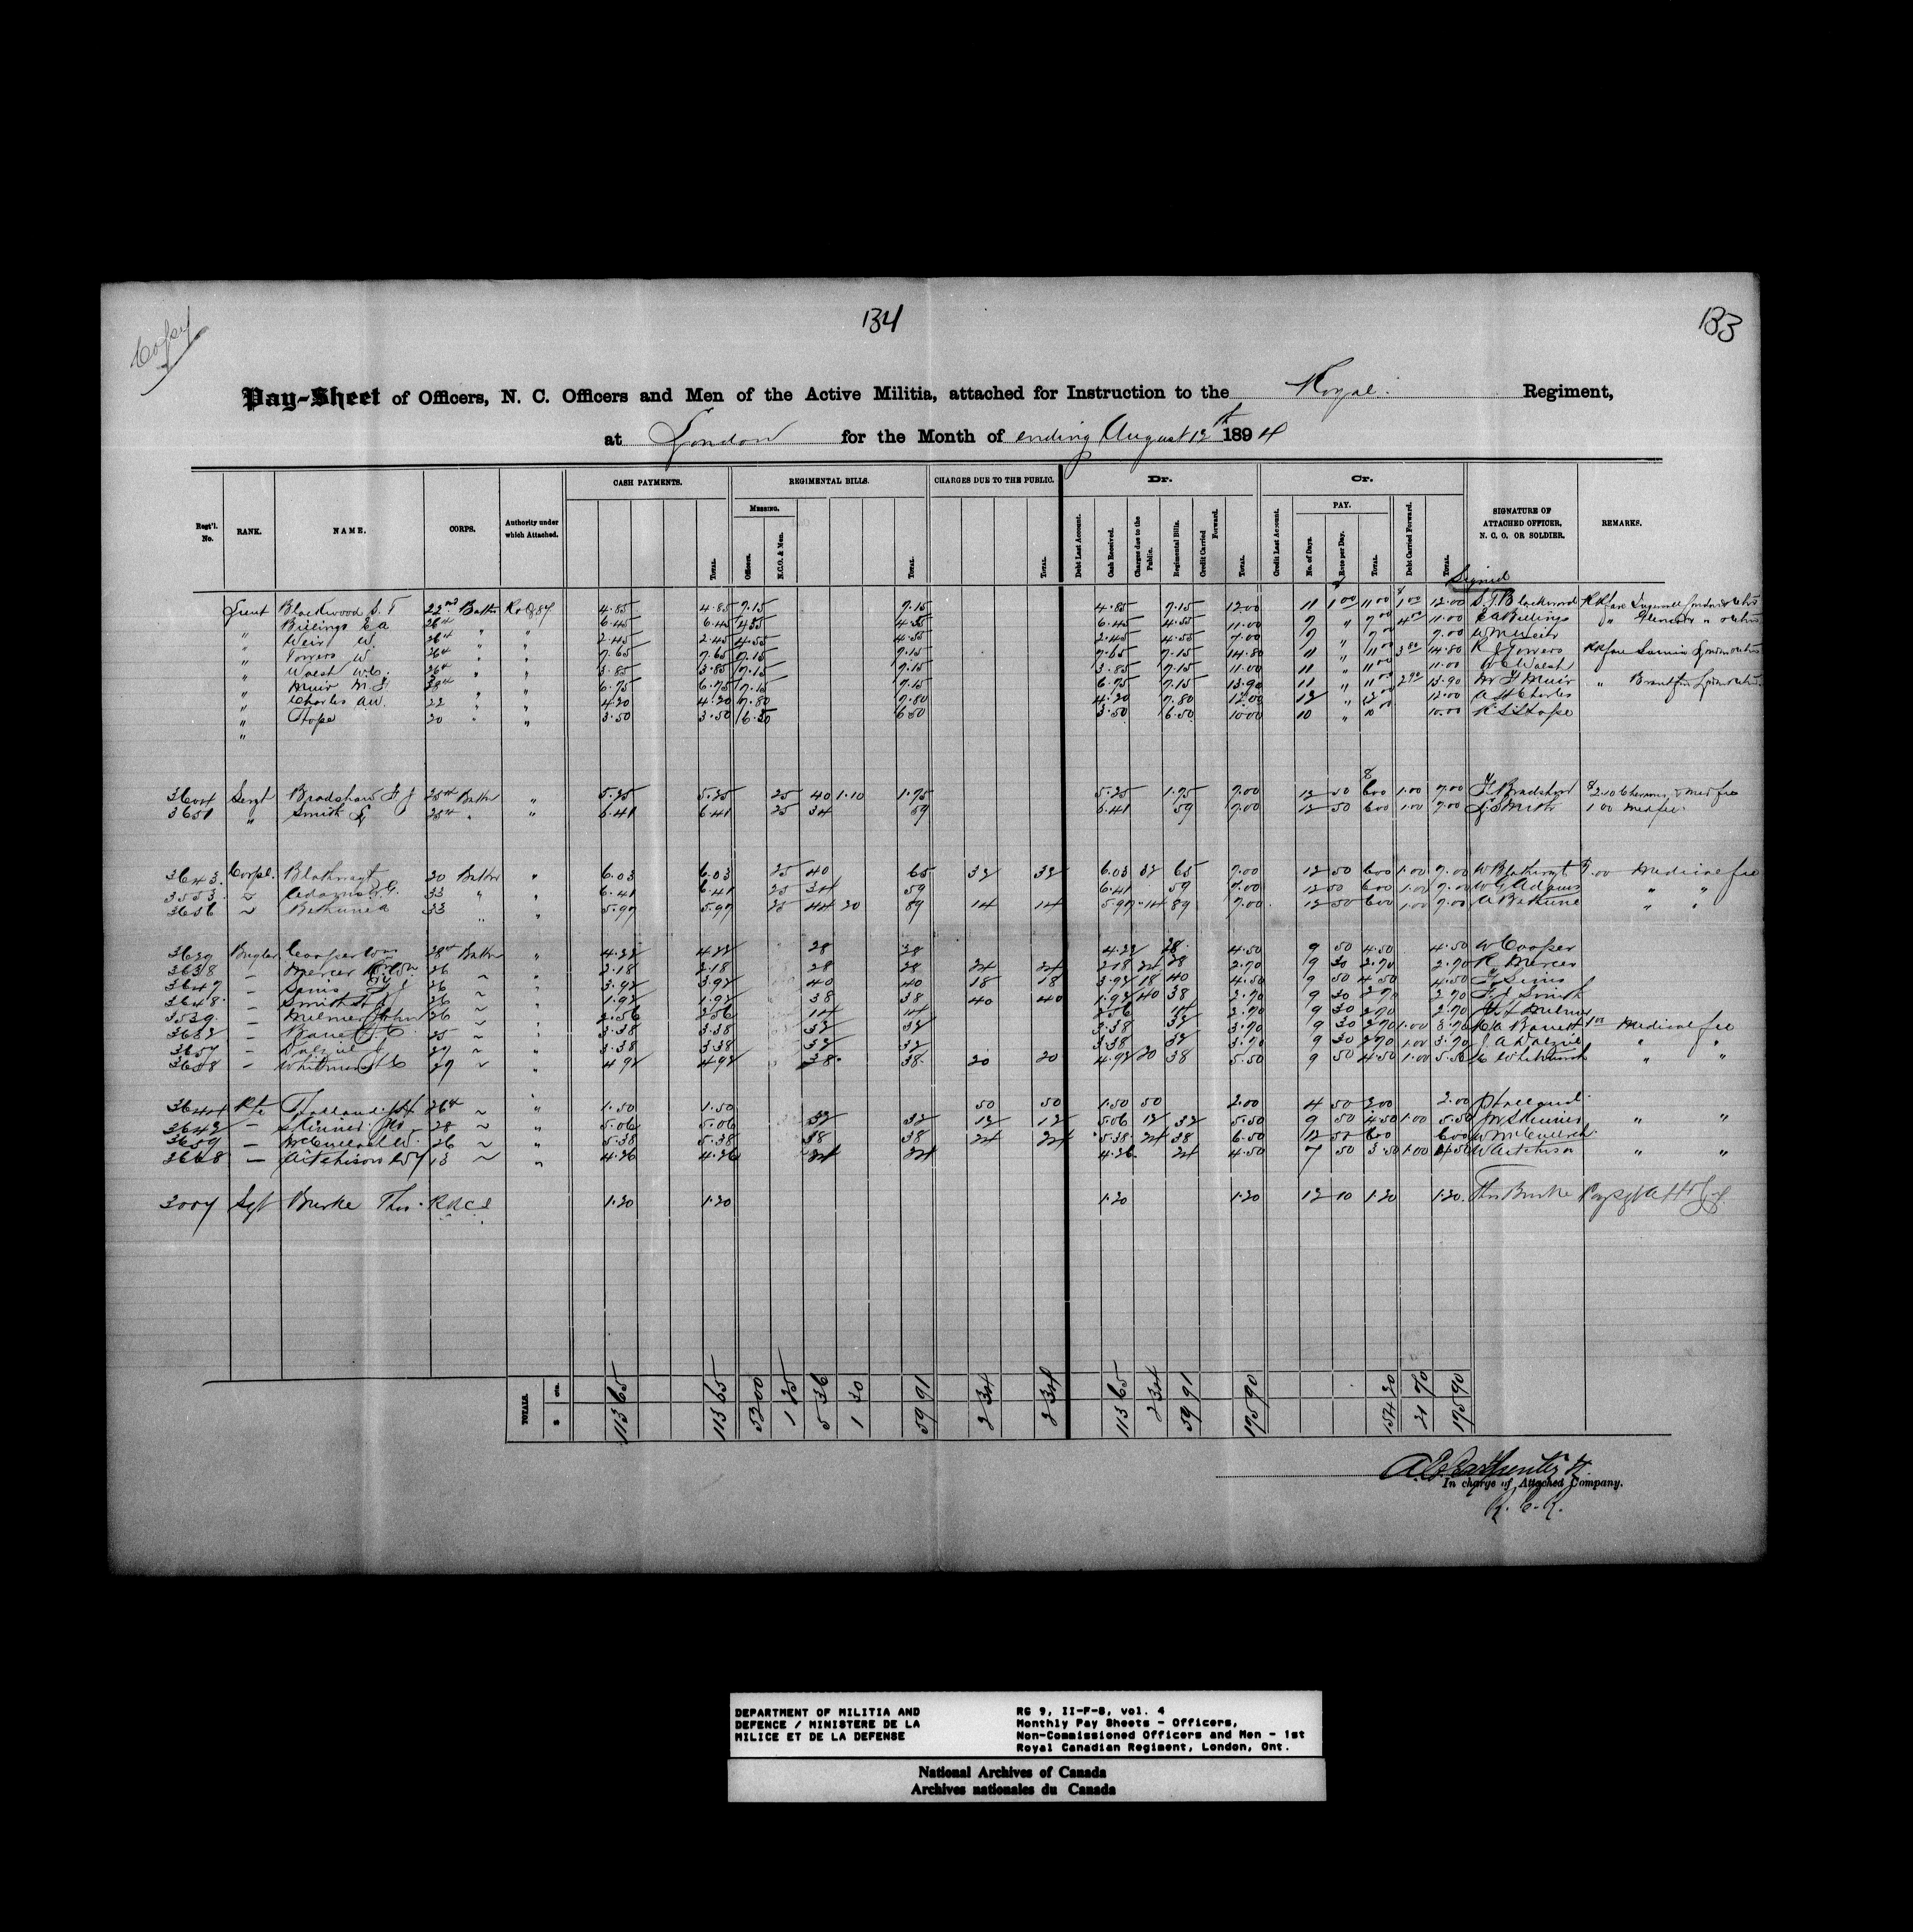 Copy
134
133
Pay-Sheet of Officers, N. C. Officers and Men of the Active Militia, attached for Instruction to the Royal Regiment,
at London for the Month of ending August 12th 1894
CASH PAYMENTS. REGIMENTAL BILLS. CHARGES DUE TO THE PUBLIC. Dr. Cr.
Regt'l. No. RANK. NAME. CORPS. Authority under which Attached. TOTAL. MESSING. Officers. N.C.O. & Men. TOTAL. TOTAL. Debt Last Account. Cash Received. Charges due to the Public. Regimental Bills. Credit Carried Forward. TOTAL. Credit Last Account. PAY. No. of Days. Rate per Day. TOTAL. Debt Carried Forward. TOTAL. SIGNATURE OF ATTACHED OFFICER, N. C. O. OR SOLDIER. REMARKS.
Signed
Lieut Blackwood S. T 22nd Battn 4.85 4.85 7.15 7.15 4.85 7.15 12.00 11 1 00 11 00 1 00 12.00 S. T. Blackwood
" Billings E A 26th " " 6.45 6.45 4.55 4.55 6.45 4.55 11.00 7 " 7 00 4 00 11.00 E A Billings
" Weir W. 26th " " 2.45 2.45 4.55 4.55 2.45 4.55 7.00 7 " 7 00 7.00 W M Weir
" W. 26th " " 7.65 7.65 7.15 7.15 7.65 7.15 14.80 11 " 11 00 3 80 14.80
" W. C. 26th " " 3.85 3.85 7.15 7.15 3.85 7.15 11.00 11 " 11 00 11.00
" Muir 38th " " 6.75 6.75 7.15 7.15 6.75 7.15 13.90 11 " 11 00 2 90 13.90 Muir
" Charles AW. 22 " " 4.20 4.20 7.80 7.80 4.20 7.80 12.00 12 " 12 00 12.00 Charles
" Hope 20 " " 3.50 3.50 6.50 6.50 3.50 6.50 10.00 10 " 10 00 10.00 Hope
"
3604 Sergt Bradshaw F J 25th Battn " 5.25 5.25 25 40 1.10 1.75 5.25 1.75 7.00 12 50 6 00 1.00 7.00 F J Bradshaw
3651 " Smith 25th " " 6.41 6.41 25 34 59 6.41 59 7.00 12 50 6 00 1.00 7.00 Smith 1 00 Med fee
3643. Corpl. 20 Battn " 6.03 6.03 25 40 65 32 32 6.03 32 65 7.00 12 50 6 00 1.00 7.00 1.00 Medical fee
3553. ~ Adams 33 " " 6.41 6.41 25 34 59 6.41 59 7.00 12 50 6 00 1.00 7.00 W G Adams " "
3656 ~ Bethune A 33 " " 5.97 5.97 25 44 20 89 14 14 5.97 14 89 7.00 12 50 6 00 1.00 7.00 A Bethune " "
Bugler Cooper Wm 28th Battn " 4.22 4.22 28 28 4.22 28 4.50 9 50 4.50 4.50 W Cooper
3638 – Mercer 26 ~ " 2.18 2.18 28 28 24 24 2.18 24 28 2.70 9 30 2.70 2.70 R Mercer
3647 – Simis 26 ~ " 3.92 3.92 40 40 18 18 3.92 18 40 4.50 9 50 4.50 4.50
3648. – Smith 26 ~ " 1.92 1.92 38 38 40 40 1.92 40 38 2.70 9 30 2 70 2.70 Smith
3539. – Milner John 26 ~ " 2.56 2.56 14 14 2.56 14 2.70 9 30 2 70 2.70 Milner
– 25 ~ " 3.38 3.38 32 32 3.38 32 3.70 9 30 2 70 1.00 3.70 1 00 Medical fee
– Dalziel J 27 ~ " 3.38 3.38 32 32 3.38 32 3.70 9 30 2 70 1.00 3.70 J. A Dalziel " "
3658 – 27 ~ " 4.92 4.92 38 38 20 20 4.92 20 38 5.50 9 50 4.50 1.00 5.50 " "
3644 Pte Holland 26th ~ " 1.50 1.50 50 50 1.50 50 2.00 4 50 2 00 2.00 Holland
3642 – Skinner 28 ~ " 5.06 5.06 32 32 12 12 5.06 12 32 5.50 9 50 4.50 1.00 5.50 Skinner " "
3659 – McCulloch W. 26 ~ " 5.38 5.38 38 38 24 24 5.38 24 38 6.00 12 50 6 00 6 00 W McCulloch
3668 – Aitchison 13 ~ " 4.26 4.26 24 24 4.26 24 4.50 7 50 3.50 1.00 4.50 W Aitchison " "
3007 Sgt Burke Thos. 1.20 1.20 1.20 1.20 12 10 1.20 1.20 Thos Burke
TOTALS. $ cts. 113 65 113 65 52 00 1 25 5 36 1 30 59 91 2 34 2 34 113 65 2 34 59 91 175 90 154 20 21 70 175 90
In charge of Attached Company.
R. C. R.
DEPARTMENT OF MILITIA AND
DEFENCE / MINISTERE DE LA
MILICE ET DE LA DEFENSE
RG 9, II-F-8, vol. 4
Monthly Pay Sheets - Officers,
Non-Commissioned Officers and Men - 1st
Royal Canadian Regiment, London, Ont.
National Archives of Canada
Archives nationales du Canada